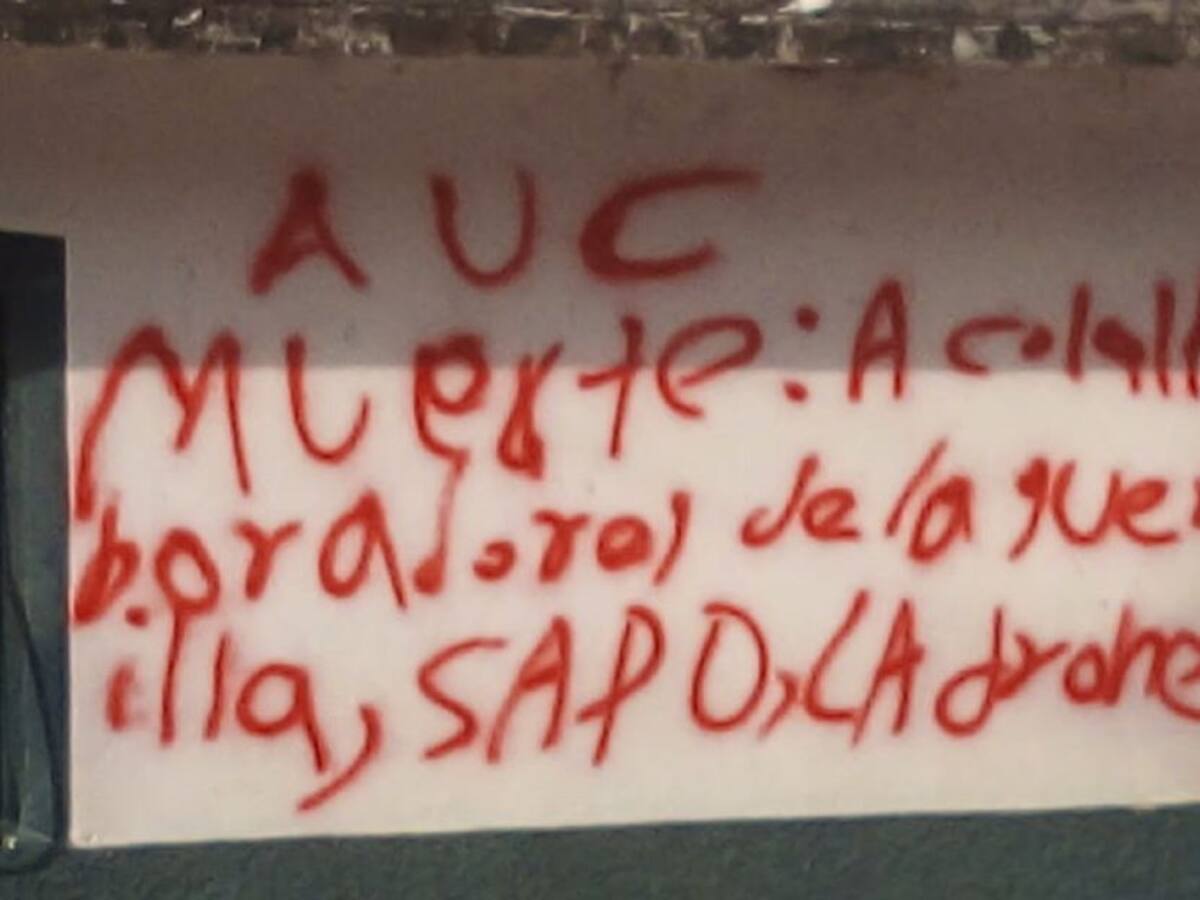 AUC
MUerte: A colall
boradores de la gue
illa, SAPO, LAdrone